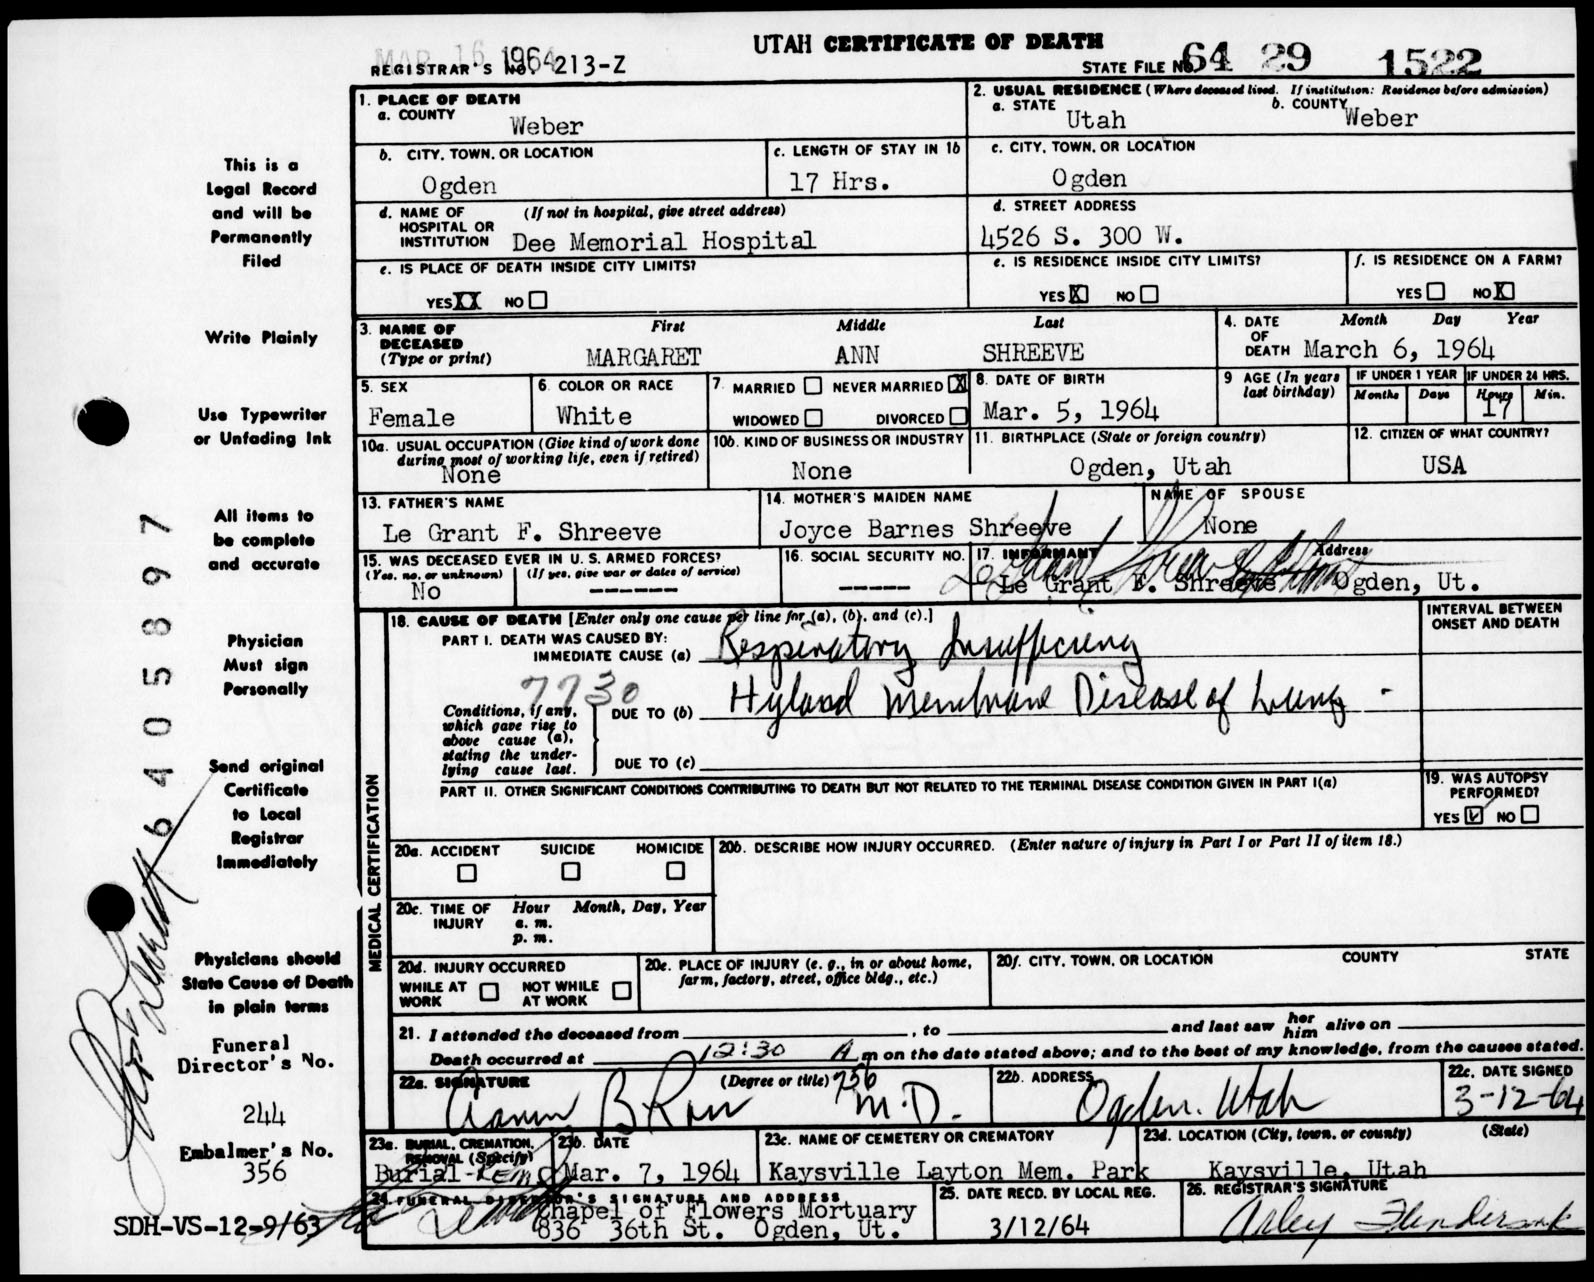 MAR 16 1964
UTAH CERTIFICATE OF DEATH
REGISTRAR'S NO. 213-Z
STATE FILE NO. 64 29 1522
1. PLACE OF DEATH
a. COUNTY
Weber
2. USUAL RESIDENCE (Where deceased lived. If institution: Residence before admission)
a. STATE
Utah
b. COUNTY
Weber
b. CITY, TOWN, OR LOCATION
Ogden
c. LENGTH OF STAY IN 1b
17 Hrs.
c. CITY, TOWN, OR LOCATION
Ogden
d. NAME OF HOSPITAL OR INSTITUTION
(If not in hospital, give street address)
Dee Memorial Hospital
d. STREET ADDRESS
4526 S. 300 W.
e. IS PLACE OF DEATH INSIDE CITY LIMITS?
YES XX NO
e. IS RESIDENCE INSIDE CITY LIMITS?
YES X NO
f. IS RESIDENCE ON A FARM?
YES NO X
3. NAME OF DECEASED
(Type or print)
First Middle Last
MARGARET ANN SHREEVE
4. DATE OF DEATH
Month Day Year
March 6, 1964
5. SEX
Female
6. COLOR OR RACE
White
7. MARRIED NEVER MARRIED X
WIDOWED DIVORCED
8. DATE OF BIRTH
Mar. 5, 1964
9 AGE (In years last birthday)
IF UNDER 1 YEAR
Months Days
IF UNDER 24 HRS.
Hours Min.
17
10a. USUAL OCCUPATION (Give kind of work done
during most of working life, even if retired)
None
10b. KIND OF BUSINESS OR INDUSTRY
None
11. BIRTHPLACE (State or foreign country)
Ogden, Utah
12. CITIZEN OF WHAT COUNTRY?
USA
13. FATHER'S NAME
Le Grant F. Shreeve
14. MOTHER'S MAIDEN NAME
Joyce Barnes Shreeve
NAME OF SPOUSE
None
15. WAS DECEASED EVER IN U. S. ARMED FORCES?
(Yes, no, or unknown) (If yes, give war or dates of service)
No ------
16. SOCIAL SECURITY NO.
-----
17. INFORMANT Address
Le Grant F. Shreeve Ogden, Ut.
MEDICAL CERTIFICATION
18. CAUSE OF DEATH [Enter only one cause per line for (a), (b), and (c).]
PART I. DEATH WAS CAUSED BY:
IMMEDIATE CAUSE (a) Respiratory Insufficiency
7730
Conditions, if any, which gave rise to above cause (a), stating the underlying cause last.
DUE TO (b) Hyland Membrane Disease of Lung -
DUE TO (c)
INTERVAL BETWEEN
ONSET AND DEATH
PART II. OTHER SIGNIFICANT CONDITIONS CONTRIBUTING TO DEATH BUT NOT RELATED TO THE TERMINAL DISEASE CONDITION GIVEN IN PART I(a)
19. WAS AUTOPSY
PERFORMED?
YES NO
20a. ACCIDENT SUICIDE HOMICIDE
20b. DESCRIBE HOW INJURY OCCURRED. (Enter nature of injury in Part I or Part II of item 18.)
20c. TIME OF INJURY
Hour Month, Day, Year
a. m.
p. m.
20d. INJURY OCCURRED
WHILE AT WORK NOT WHILE AT WORK
20e. PLACE OF INJURY (e. g., in or about home,
farm, factory, street, office bldg., etc.)
20f. CITY, TOWN, OR LOCATION COUNTY STATE
21. I attended the deceased from , to and last saw her him alive on
Death occurred at 12:30 A m on the date stated above; and to the best of my knowledge, from the causes stated.
22a. SIGNATURE (Degree or title) 756
M.D.
22b. ADDRESS
Ogden. Utah
22c. DATE SIGNED
3-12-64
23a. BURIAL, CREMATION,
REMOVAL (Specify)
Burial-
23b. DATE
Mar. 7, 1964
23c. NAME OF CEMETERY OR CREMATORY
Kaysville Layton Mem. Park
23d. LOCATION (City, town, or county) (State)
Kaysville, Utah
24. FUNERAL DIRECTOR'S SIGNATURE AND ADDRESS
Chapel of Flowers Mortuary
836 36th St. Ogden, Ut.
25. DATE RECD. BY LOCAL REG.
3/12/64
26. REGISTRAR'S SIGNATURE
This is a
Legal Record
and will be
Permanently
Filed
Write Plainly
Use Typewriter
or Unfading Ink
All items to
be complete
and accurate
Physician
Must sign
Personally
Send original
Certificate
to Local
Registrar
Immediately
Physicians should
State Cause of Death
in plain terms
Funeral
Director's No.
244
Embalmer's No.
356
SDH-VS-12-9/63
6405897